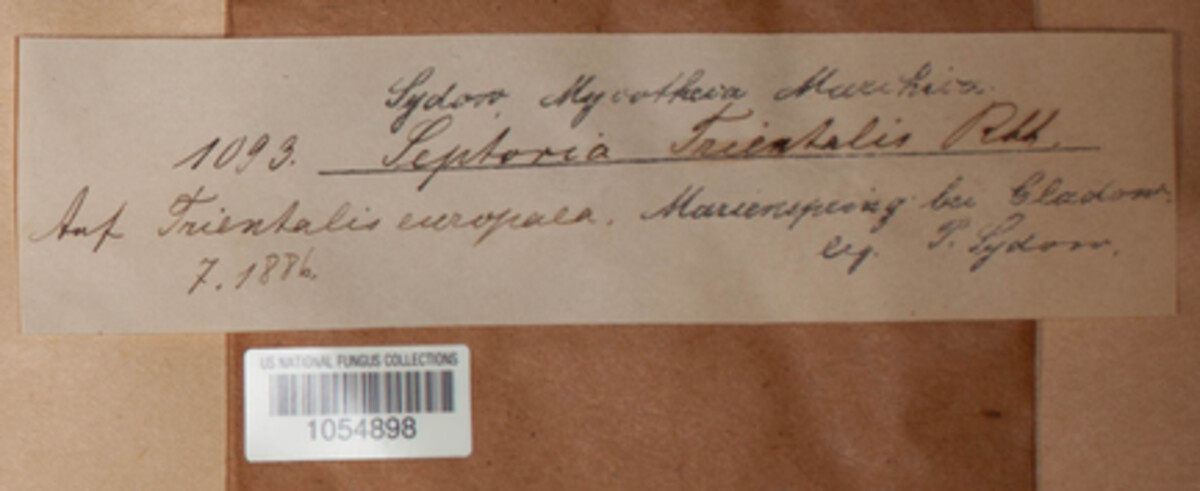 Sydow, Mycotheca Marchica.
1093. Septoria Trientalis
Auf Trientalis europaea. Marienspring bei Cladow.
7. 1886. leg. P. Sydow.
US NATIONAL FUNGUS COLLECTIONS
1054898